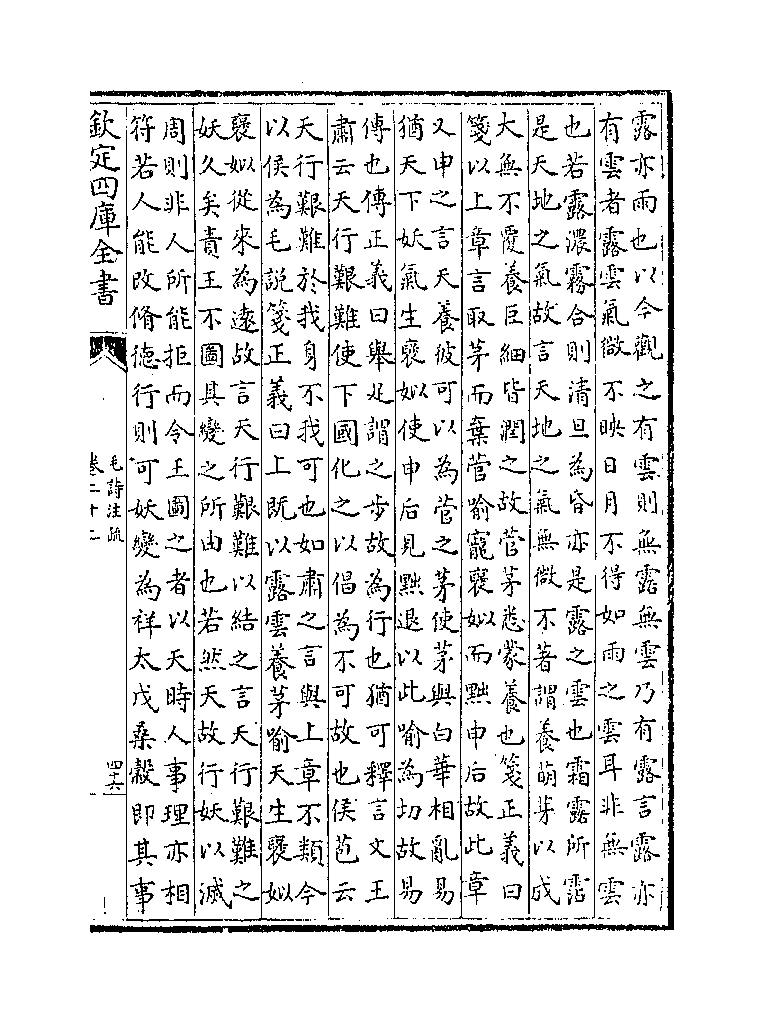 露亦雨也以今觀之有雲則無露無雲乃有露言露亦
有雲者露雲氣微不映日月不得如雨之雲耳非無雲
也若露濃霧合則清旦為昏亦是露之雲也霜露所霑
是天地之氣故言天地之氣無微不著謂養萌芽以成
大無不覆養巨細皆潤之故菅茅悉蒙養也箋正義曰
箋以上章言取茅而棄菅喻寵褒姒而黜申后故此章
又申之言天養彼可以為菅之茅使茅與白華相亂易
猶天下妖氣生褒姒使申后見黜退以此喻為切故易
傳也傳正義曰舉足謂之步故為行也猶可釋言文王
肅云天行艱難使下國化之以倡為不可故也侯苞云
天行艱難於我身不我可也如肅之言與上章不類今
以侯為毛說箋正義曰上既以露雲養茅喻天生褒姒
褒姒從來為遠故言天行艱難以結之言天行艱難之
妖久矣責王不圖其變之所由也若然天故行妖以滅
周則非人所能拒而令王圖之者以天時人事理亦相
符若人能改脩德行則可妖變為祥太戊桑穀即其事
欽定四庫全書
毛詩注疏
卷二十二
四十六